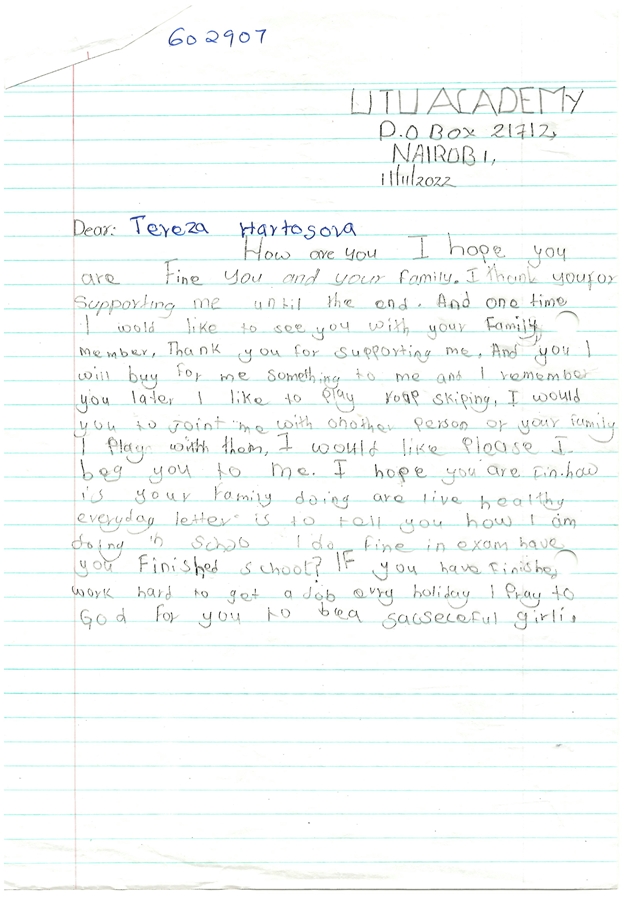 602907
UTU ACADEMY
P.O BOX 21712,
NAIROBI,
11/11/2022
Dear: Tereza Hartosova
How are you I hope you
are Fine you and your family. I thank you for
supporting me until the end. And one time
I wold like to see you with your Family
member, Thank you for supporting me, And you I
will buy for me something to me and I remember
you later I like to play roap skiping, I would
you to joint me with onother person or your family
I play with them, I would like please I
beg you to me. I hope you are Fin.how
is your family doing are live healthy
everyday letter is to tell you how I am
doing in I do fine in exam have
you Finished school? IF you have Finished
work hard to get a Job evry holiday I pray to
God for you to bea sacseceful girli.